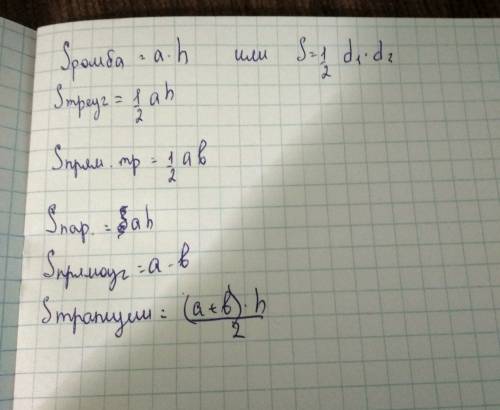 Sромба = a · h или S = 1/2 d₁ · d₂
Sтреуг = 1/2 ah
Sпрям. тр = 1/2 ав
Sпар. = ah
Sпрямоуг = а · в
Sтрапеции = (а + в) · h / 2